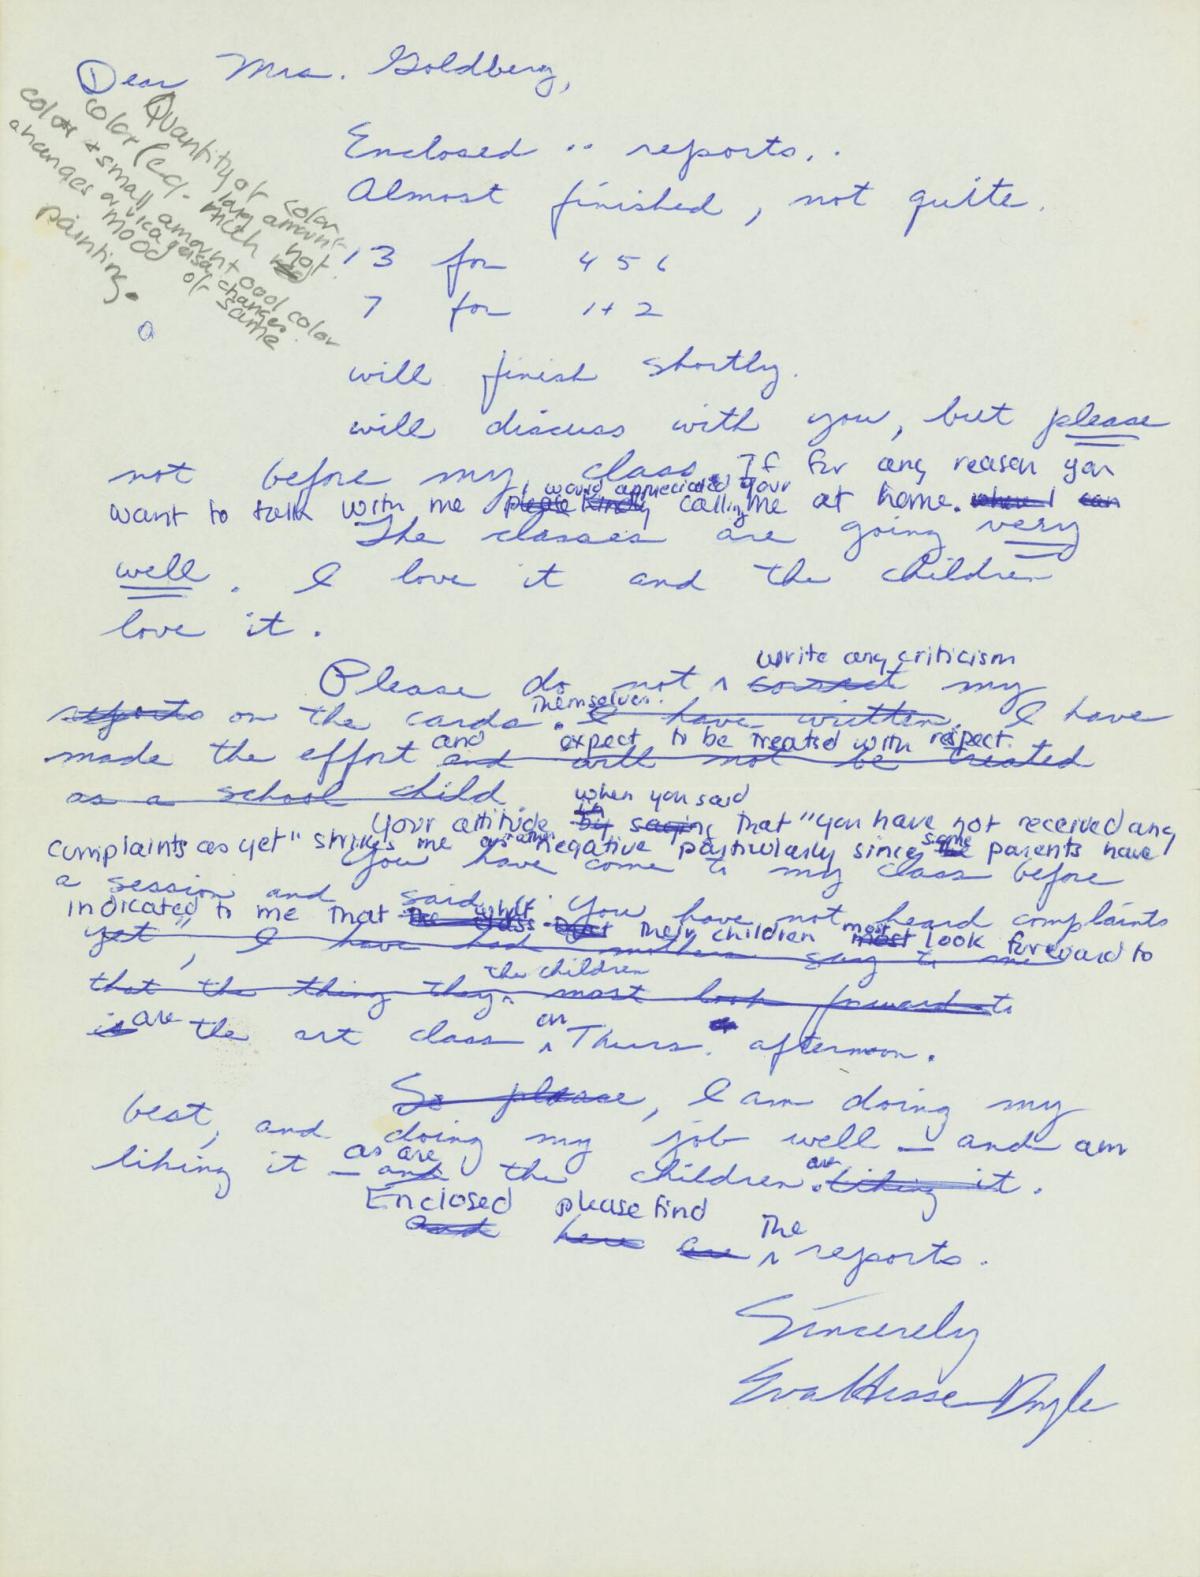 Dear Mrs. Goldberg,
Quantity of color
color (eg. large amount
much not
color + small amount cool color
changes
changes mood of same
painting.
a
Enclosed .. reports. .
Almost finished, not quite.
13 for 4 5 6
7 for 1 + 2
will finish shortly.
will discuss with you, but please
not before my class. If for any reason you
I would appreciated your
want to talk with me please kindly calling me at home. where I can
The classes are going very
well. I love it and the children
love it.
write any criticism
Please do not ^ correct my
themselves.
reports on the cards. I have written. I have
and expect to be treated with respect.
made the effort and will not be treated
as a school child.
when you said
Your attitude by saying that "you have not received any
complaints as yet" strikes me as rather negative particularly since some parents have
You have come to my class before
a session and said, "You have not heard complaints
indicated to me that the class what their children most look forward to
yet", I have had mothers say to me
the children
that the thing they ^ most look forward to
is are the art class ^ on Thurs. afternoon.
So please, I am doing my
best, and doing my job well — and am
liking it — and as are the children. are liking it.
Enclosed please find
and here are ^ the reports.
Sincerely
Eva Hesse Doyle